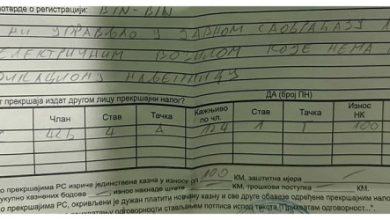 потврде о регистрацији: BIN-BIN
НИ УПРАВЉАО У ЈАВНОМ САОБРАЋАЈУ
ЕЛЕКТРИЧНИМ ВОЗИЛОМ КОЈЕ НЕМА
НАЉЕПНИЦУ
прекршаја издат другом лицу прекршајни налог? ДА (број ПН)
Члан Став Тачка Кажњиво по чл. Став Тачка Износ НК
42б 4 А 124 1 1 100
прекршајима РС изриче јединствена казна у износу од 100 КМ, заштитна мјера
укупно казнених бодова износ накнаде штете КМ, трошкови поступка КМ.
о прекршајима РС, окривљени је дужан платити новчану казну и све друге обавезе одређене прекршајним
одговорности стављањем потписа испод текста "Прихватам одговорност"